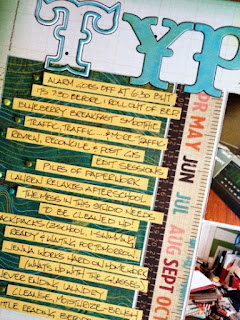 TYP
ALARM GOES OFF AT 6:30 BUT
IT'S 7:30 BEFORE I ROLL OUT OF BED
BLUEBERRY BREAKFAST SMOOTHIE
TRAFFIC, TRAFFIC... & MORE TRAFFIC
REVIEW, RECONCILE & POST G/S
EDIT SESSIONS
PILES OF PAPERWORK
LAUREN RELAXES AFTER SCHOOL
THE MESS IN THIS STUDIO NEEDS
TO BE CLEANED UP!
BACKPACKS (2 SCHOOL, 1
READY & WAITING FOR TOMORROW
JENNA WORKS HARD ON HOMEWORK
(WHAT'S UP WITH THE GLASSES)
NEVER ENDING LAUNDRY
CLEANSE, MOISTURIZE, BRUSH
LITTLE READING
MAY
JUN
JUL
AUG
SEPT
OCT